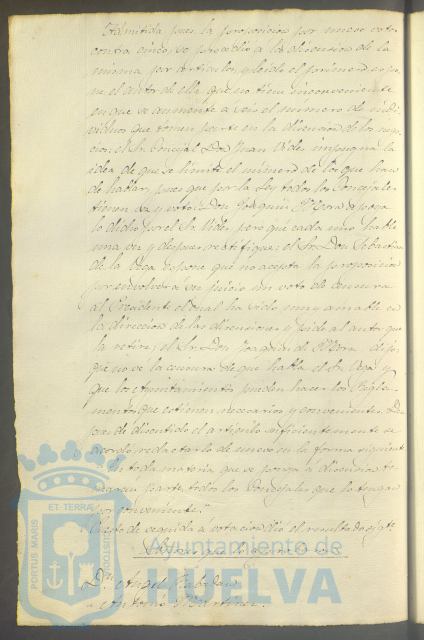 Admitida pues la proposicion por nueve votos
contra cinco, se procedió a la discusion de la
misma por articulos, y leido el primero espo
ne el autor de ella que no tiene inconveniente
en que se aumente a seis el número de indi
viduos que tomen parte en la discusion de los nego
cios: el Sr. Concejal Don Juan Vides impugna la
idea de que se limite el número de los que han
de hablar, pues que por la Ley todos los Concejales
tienen voz y voto: Don Joaquin Mora apoya
lo dicho por el Sr. Vides, pero que cada uno hable
una vez y despues rectifique: el Sr. Don Sebastian
de la Vega espone que no acepta la proposicion
por envolver en su juicio un voto de censura
al Presidente el cual ha sido muy amable en
la direccion de las discusiones y pide al autor que
la retire; el Sr. Don Joaquin de Mora dijo
que no ve la censura de que habla el Sr. Vega y
que los Ayuntamientos pueden hacer los Regla-
mentos que estimen necesarios y convenientes. Des
pues de discutido el articulo suficientemente se
acordó redactarlo de nuevo en la forma siguiente
En toda materia que se ponga a discusion to
marán parte todos los Concejales que lo tengan
por conveniente."
Puesto de seguida a votacion dió el resultado sigte.
Señores que lo
Dn. Angel
" Antonio Martinez.
ET TERRA
PORTUS MARIS
CUSTODIA
Ayuntamiento de
HUELVA